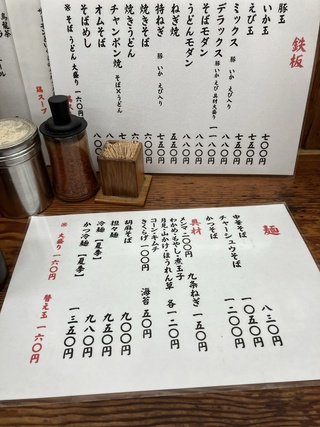 鉄板
豚玉
いか玉 七五〇円
えび玉 七五〇円
ミックス 豚 いか えび入り 八五〇円
デラックス 豚 いか えび 具材大盛り 一一〇〇円
そばモダン 八八〇円
うどんモダン 八八〇円
ねぎ焼 五五〇円
特ねぎ 豚 いか えび入り
焼きそば
焼きうどん
チャンポン焼 そば×うどん
オムそば
そばめし
※ そば うどん 大盛り 一六〇円
鶏スープ
烏龍茶
麺
中華そば 八三〇円
チャーシュウそば 一〇五〇円
かつそば 一二〇〇円
具材
メンマ 二〇〇円 九条ねぎ 一五〇円
わかめ・もやし・煮玉子
月見・山かけ・ほうれん草 各一二〇円
コーン・キムチ
きくらげ 一〇〇円 海苔 五〇円
胡麻そば 九〇〇円
担々麺 九五〇円
冷麺【夏季】 九八〇円
かつ冷麺【夏季】 一三五〇円
※ 大盛り 一六〇円 替え玉 一六〇円